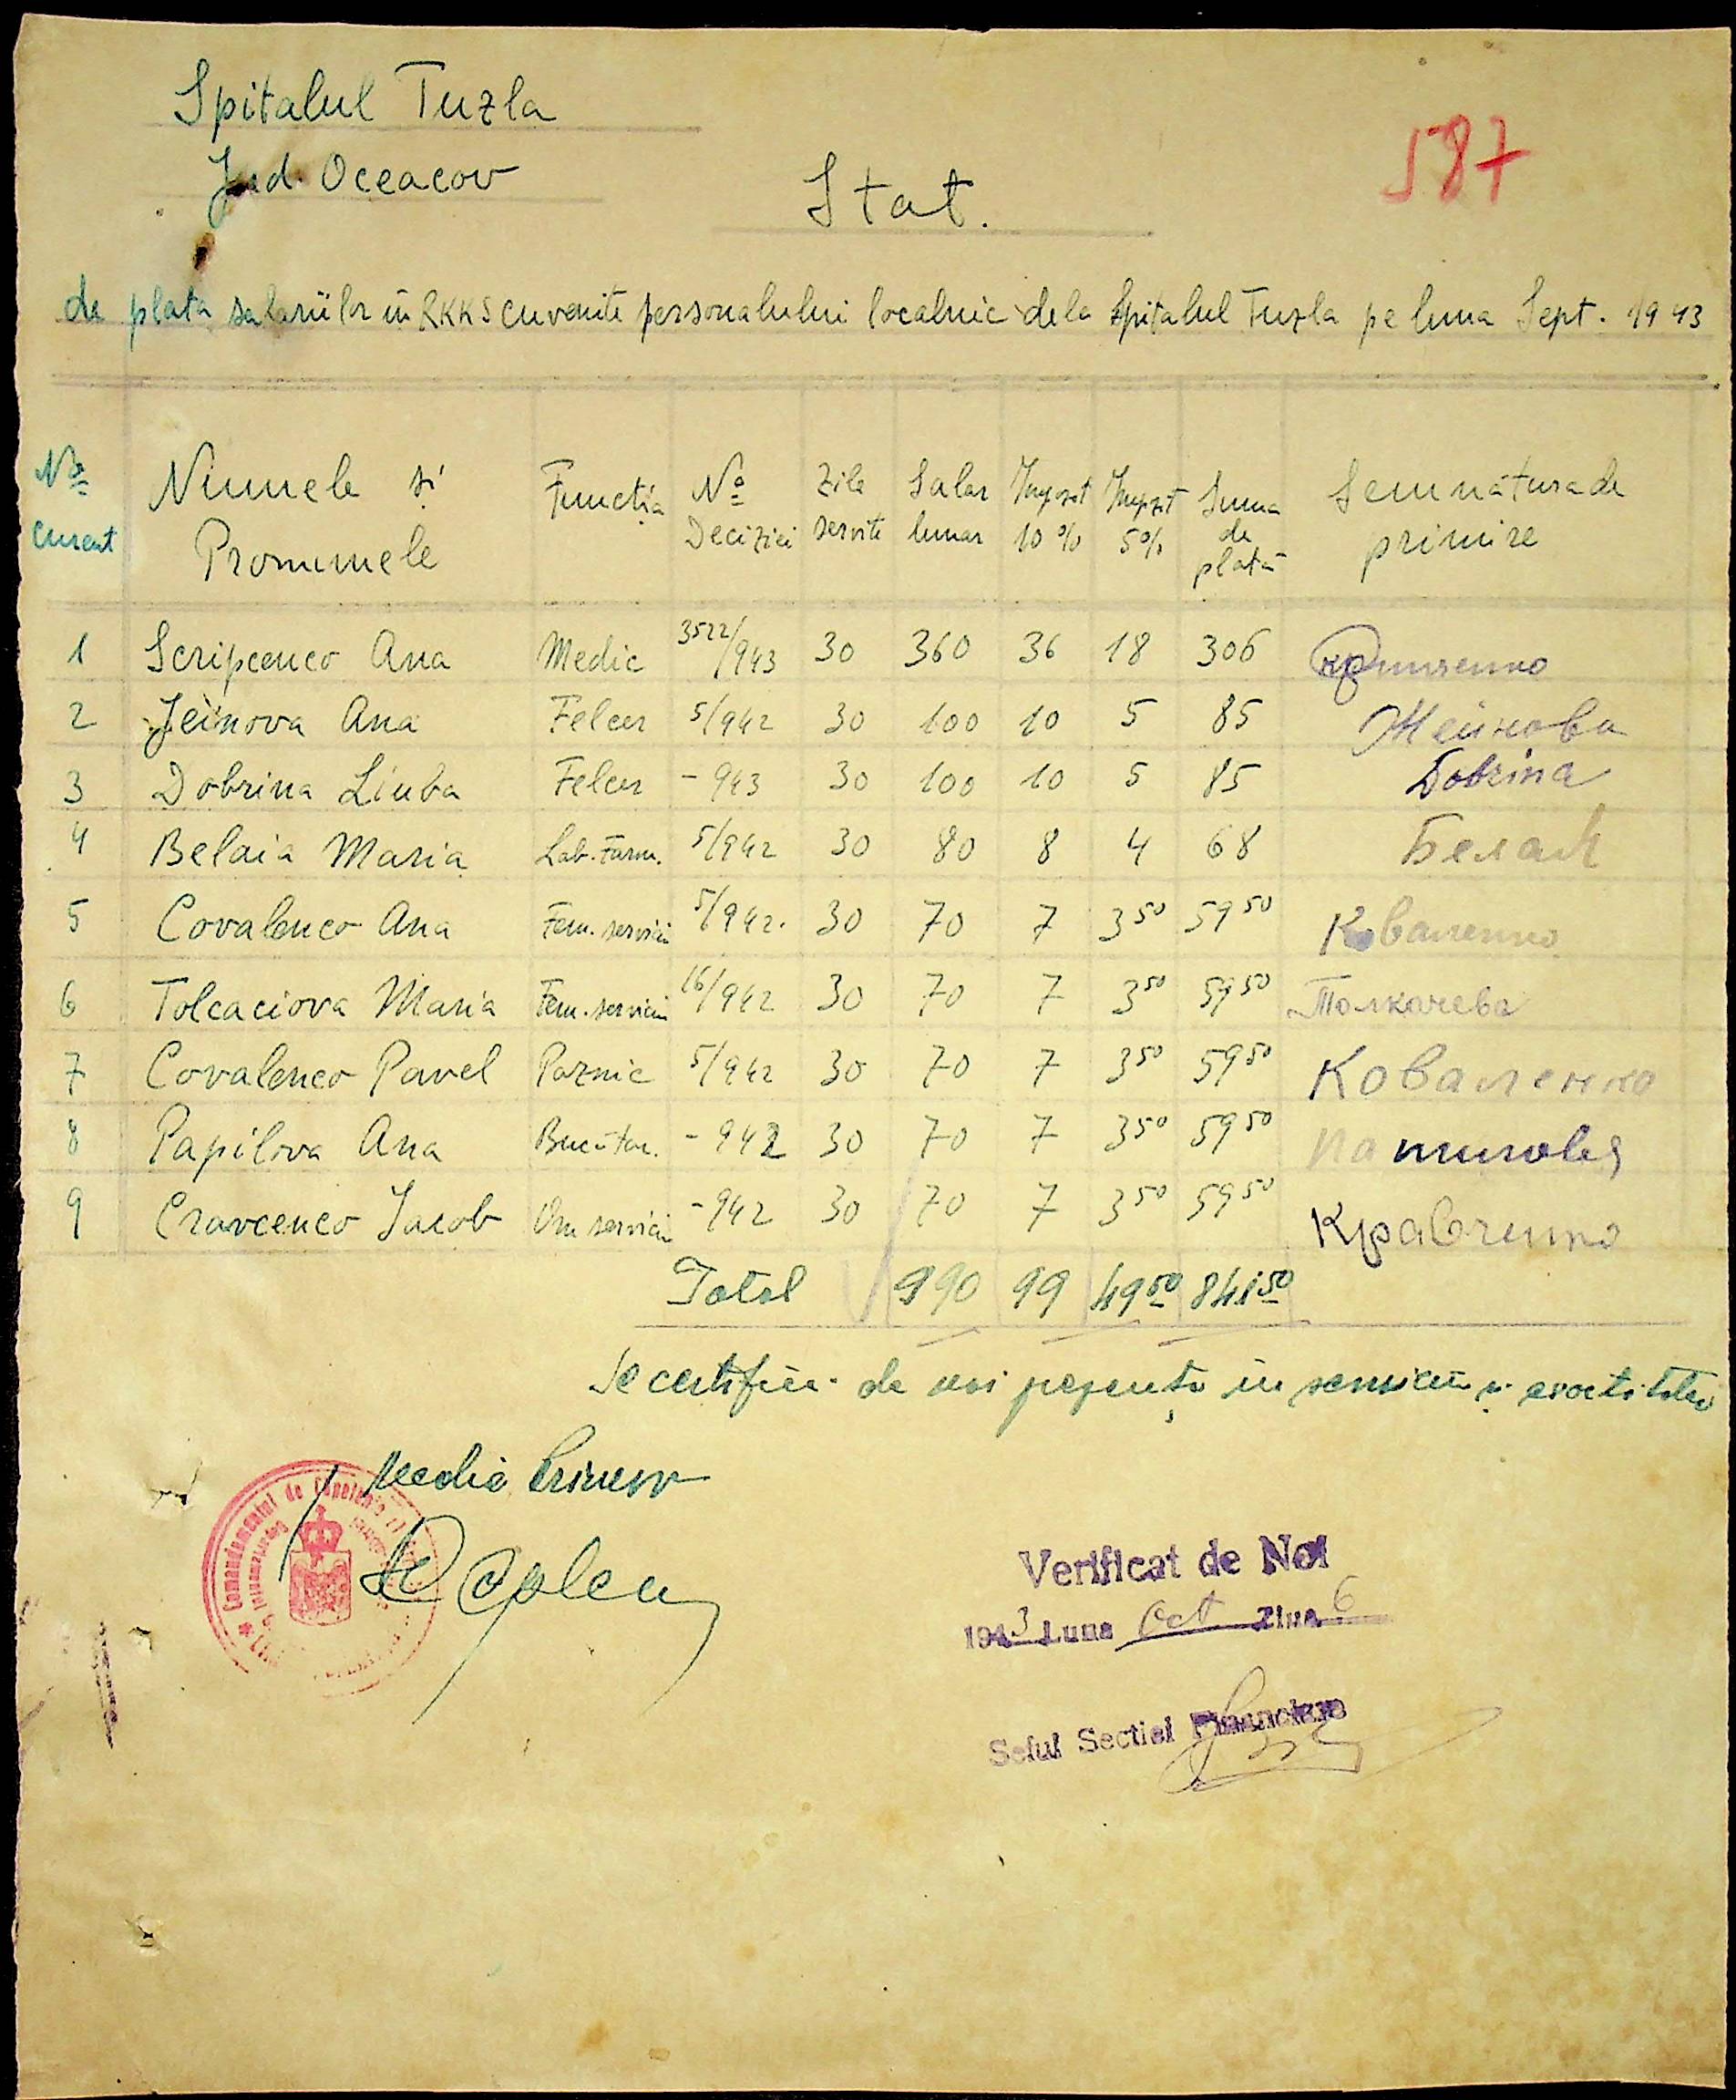 Spitalul Tuzla
Jud. Oceacov
587
Stat.
de plata salariilor in RKKS cuvenite personalului localnic dela Spitalul Tuzla pe luna Sept. 1943
No curent Numele si Pronumele Functia No Deciziei Zile servite Salar lunar Impozit 10% Impozit 5% Suma de plată Semnătura de primire
1 Scripcenco Ana Medic 3522/943 30 360 36 18 306
2 Jeinova Ana Felcer 5/942 30 100 10 5 85 Жейнова
3 Dobrina Liuba Felcer - 943 30 100 10 5 85 Dobrina
4 Belaia Maria Lab. Farm. 5/942 30 80 8 4 68 Белая
5 Covalenco Ana Fem. serviciu 5/942. 30 70 7 3 50 59 50 Коваленко
6 Tolcaciova Maria Fem. serviciu 16/942 30 70 7 3 50 59 50 Толкачева
7 Covalenco Pavel Paznic 5/942 30 70 7 3 50 59 50 Коваленко
8 Papilova Ana Bucătar. - 942 30 70 7 3 50 59 50
9 Cravcenco Jacob Om serviciu - 942 30 70 7 3 50 59 50 Кравченко
Total 990 99 49 50 841 50
Se certifica de noi prezenta in serviciu si
Medic
Comandamentul de
Verificat de Noi
1943 Luna Oct Ziua 6
Seful Sectiei Financiare